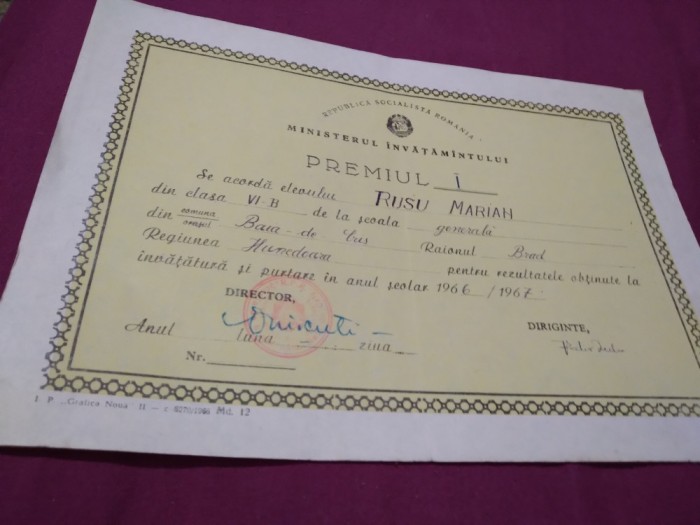 REPUBLICA SOCIALISTA ROMANIA
MINISTERUL ÎNVĂŢĂMÎNTULUI
PREMIUL I
Se acordă elevului RUSU MARIAN
din clasa VI B de la şcoala generală
din comuna
oraşul Baia-de Criş Raionul Brad
Regiunea Hunedoara pentru rezultatele obţinute la
învăţătură şi purtare în anul şcolar 1966/1967
DIRECTOR,
DIRIGINTE,
Anul luna ziua
Nr.
I. P. „Grafica Nouă" II — c. Mil. 12